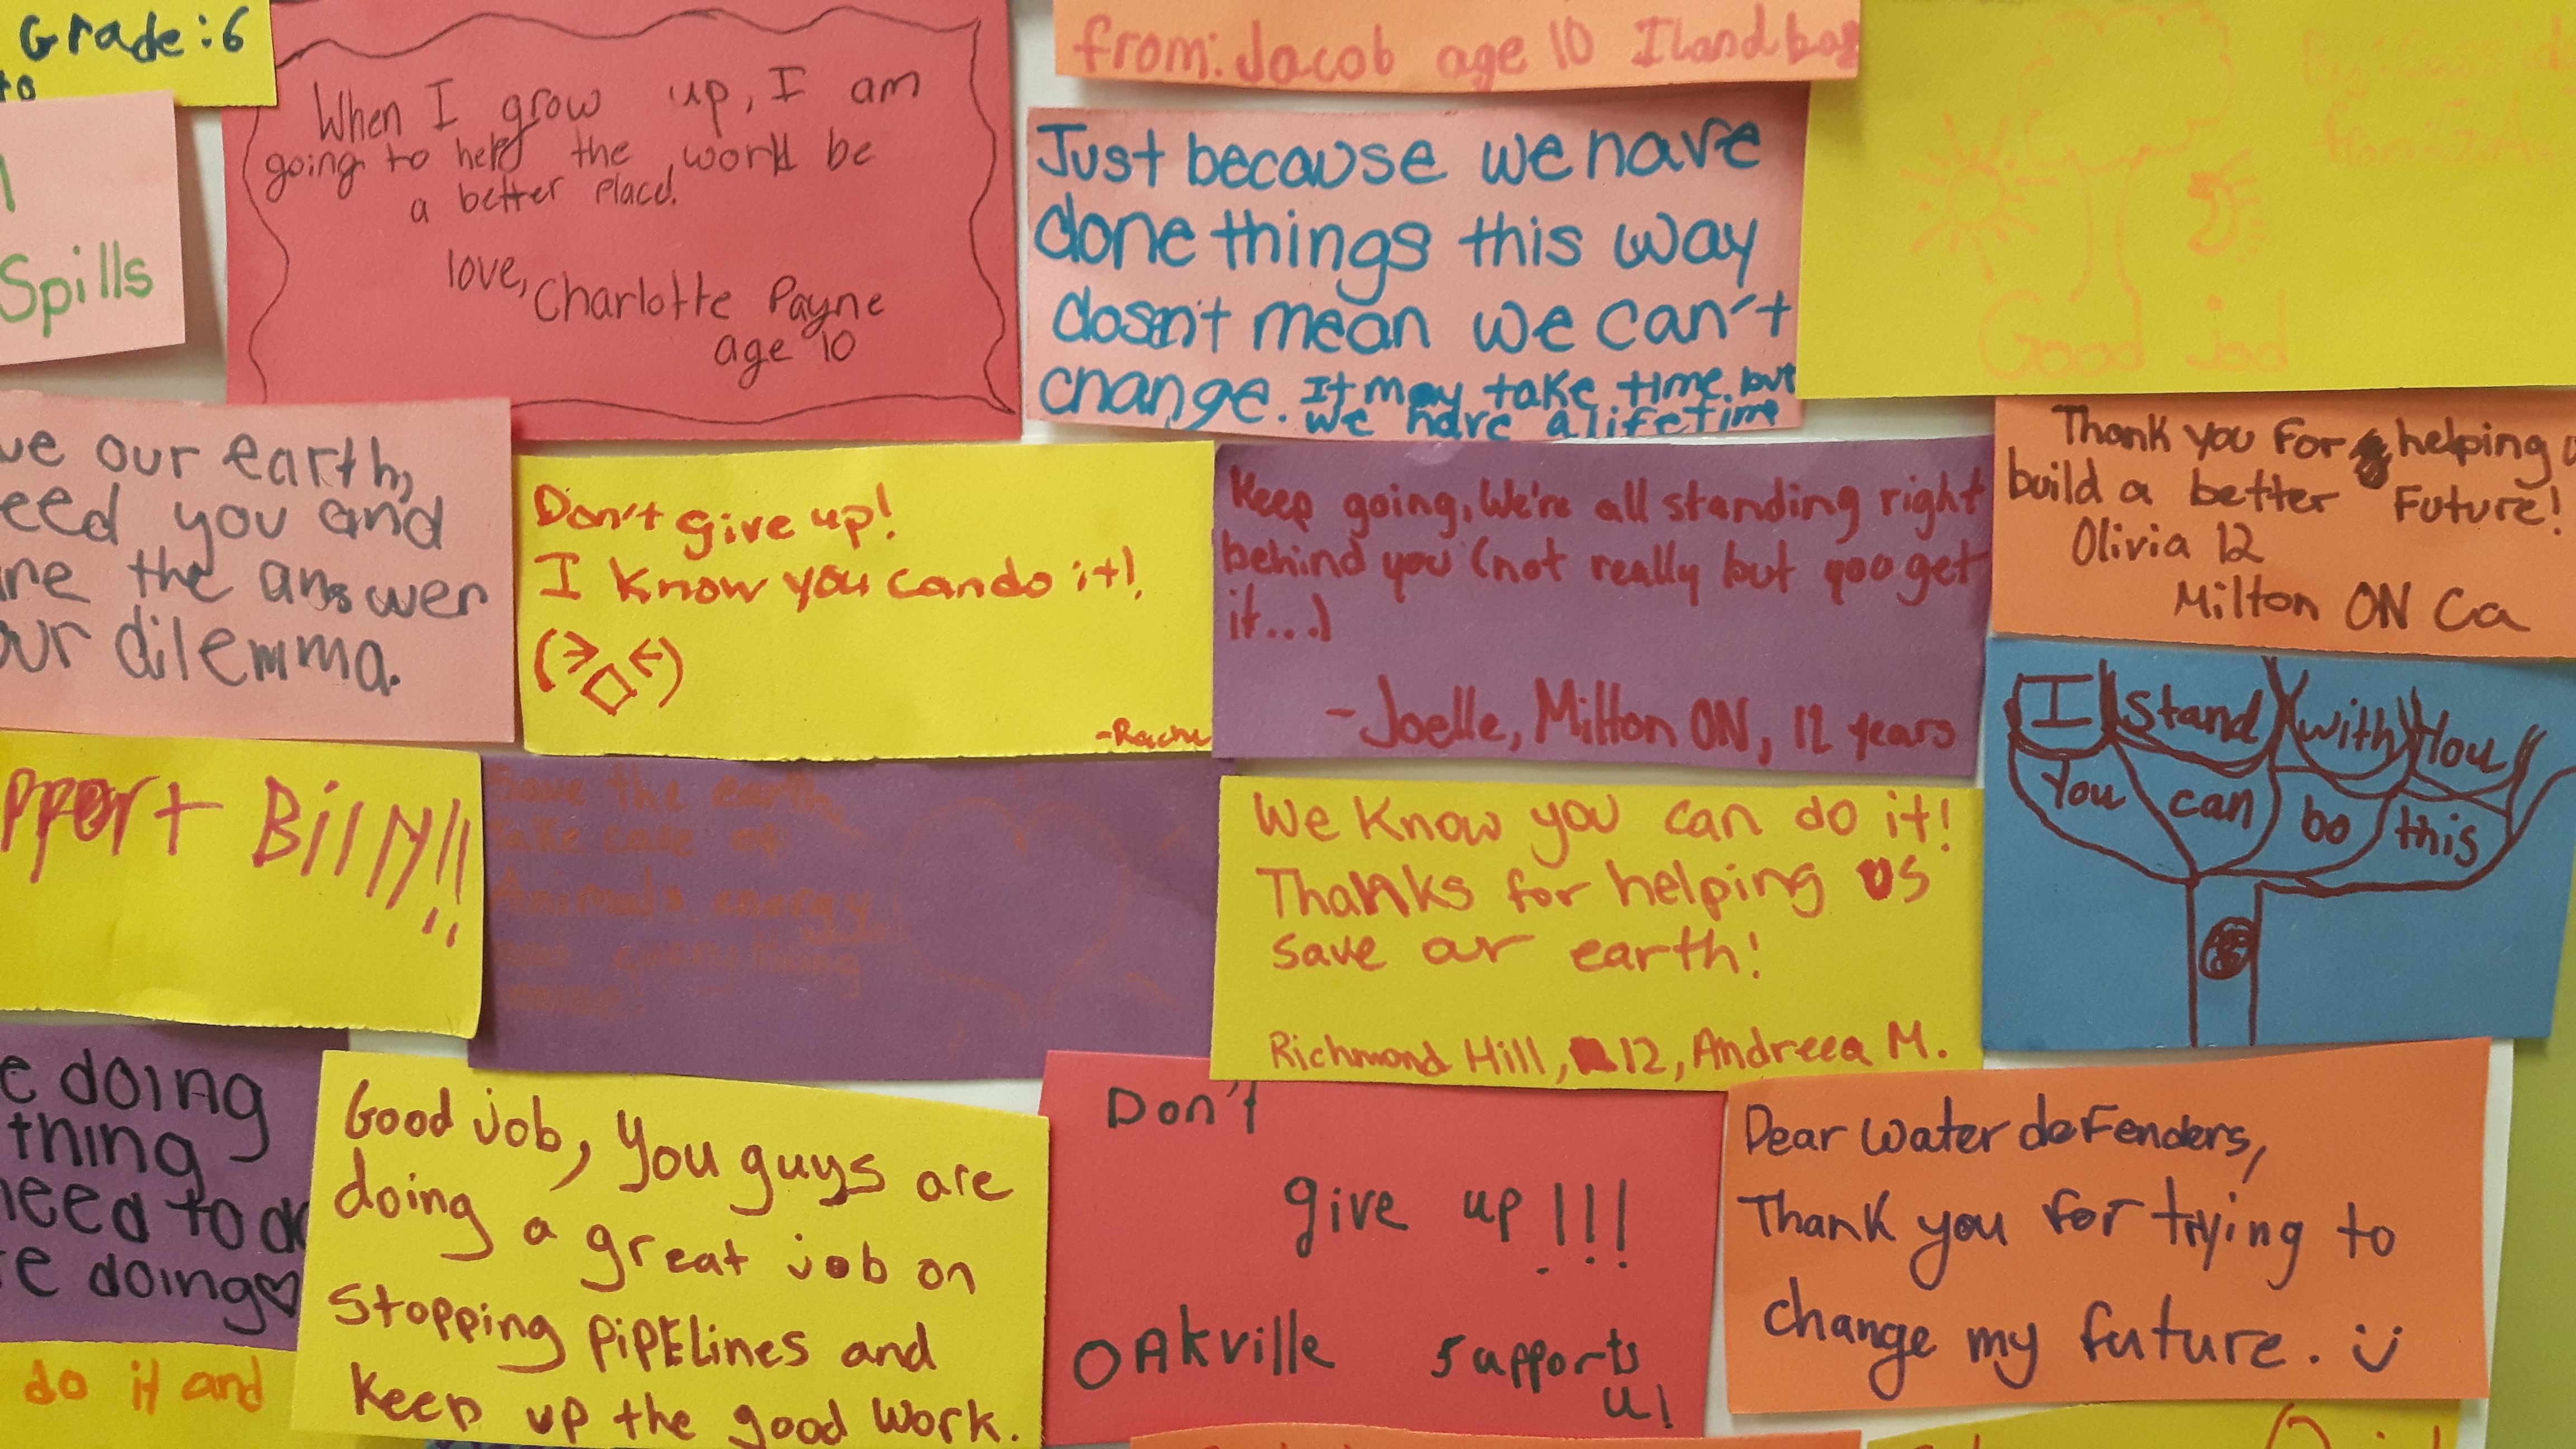 Grade:6
to
When I grow up, I am
going to help the world be
a better place.
love, Charlotte Payne
age 10
from: Jacob age 10 Iland bay
Just because we have
done things this way
dosn't mean we can't
change. It may take time. but
we have a lifetime
Good jod
Spills
ve our earth,
eed you and
are the answer
our dilemma.
Don't give up!
I know you can do it!
-Rache
Keep going, We're all standing right
behind you (not really but you get
it...)
-Joelle, Milton ON, 12 years
Thank you For helping
build a better Future!
Olivia 12
Milton ON Ca
I stand with You
You can bo this
pport Billy!!
Save the earth,
take care of
Animals, energy
and everything
We Know you can do it!
Thanks for helping us
save our earth!
Richmond Hill, 12, Andreea M.
e doing
thing
need to do
re doing♡
Good job, you guys are
doing a great job on
stopping pipelines and
keep up the good work.
Don't
give up!!!
OAkville supports
u!
Dear Water defenders,
Thank you for trying to
change my future. :)
do it and